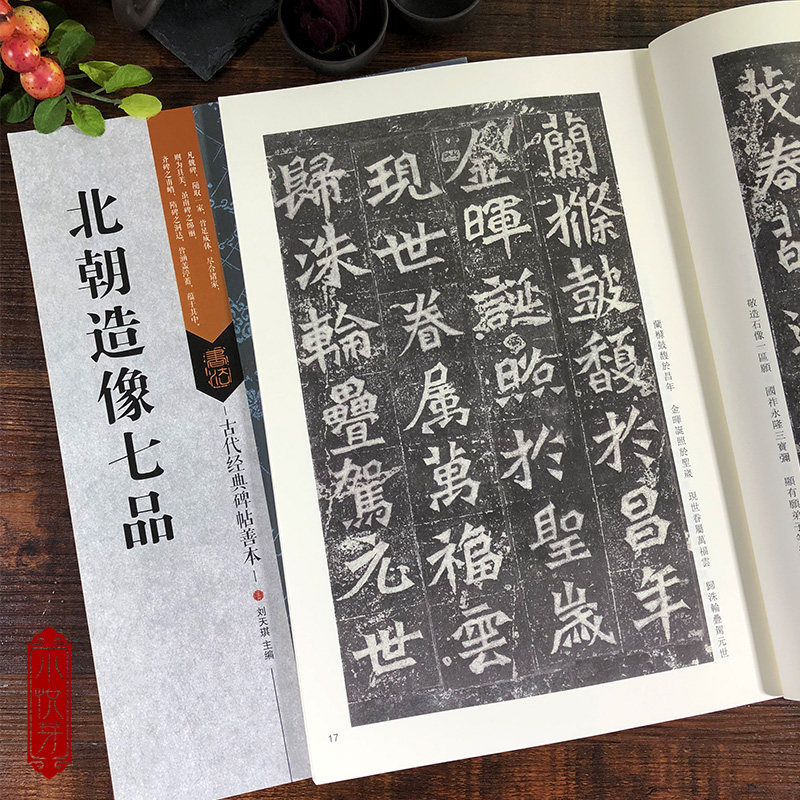 北朝造像七品
凡魏碑，随取一家，皆足成体，尽合诸家，
则为具美，虽南碑之绵丽，
齐碑之逋峭，隋碑之洞达，皆涵盖渟蓄，蕴于其中。
書法
古代经典碑帖善本
刘天琪 主编
蘭樤鼓馥於昌年
金暉誕照於聖歲
現世眷属萬福雲
歸洙輪疊駕元世
蘭樤鼓馥於昌年 金暉誕照於聖歲 現世眷屬萬福雲 歸洙輪疊駕元世
17
茂春
敬造石像一區願 國祚永隆三寶彌 顯有願弟子